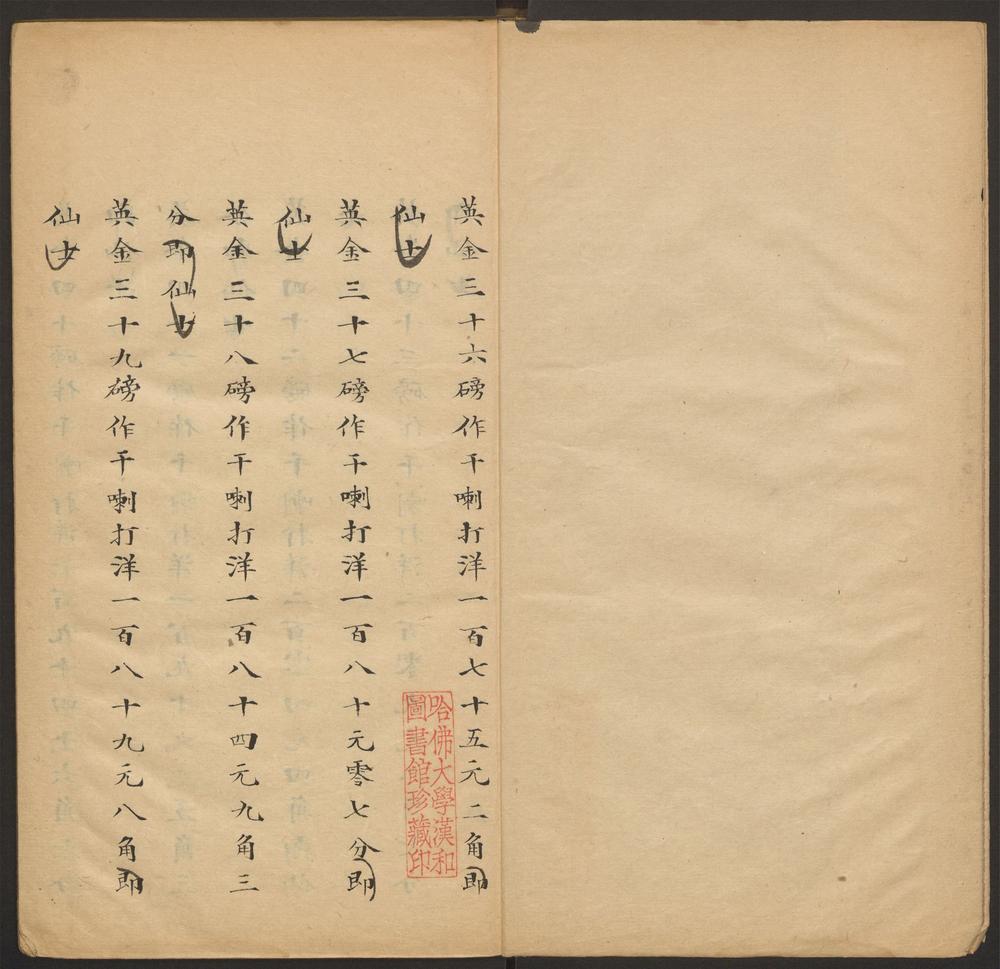 英金三十六磅作干喇打洋一百七十五元二角即
仙士
英金三十七磅作干喇打洋一百八十元零七分即
仙士
英金三十八磅作干喇打洋一百八十四元九角三
分即仙士
英金三十九磅作干喇打洋一百八十九元八角即
仙士
哈佛大學漢和
圖書館珍藏印